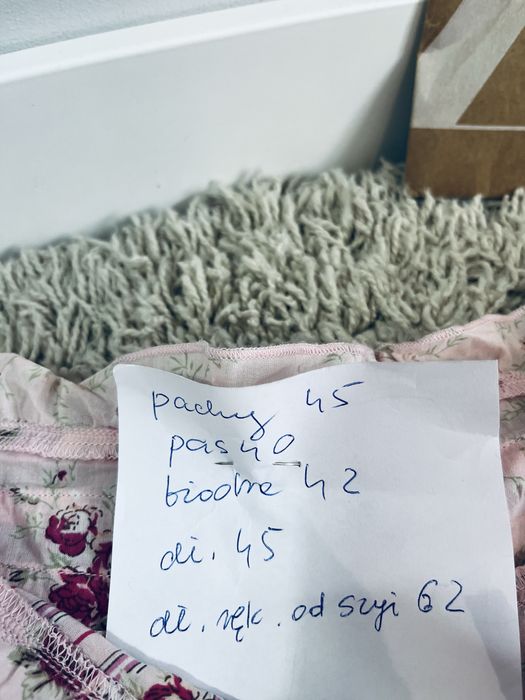 pachy 45
pas 40
biodra 42
dł. 45
dł. ręk. od szyi 62